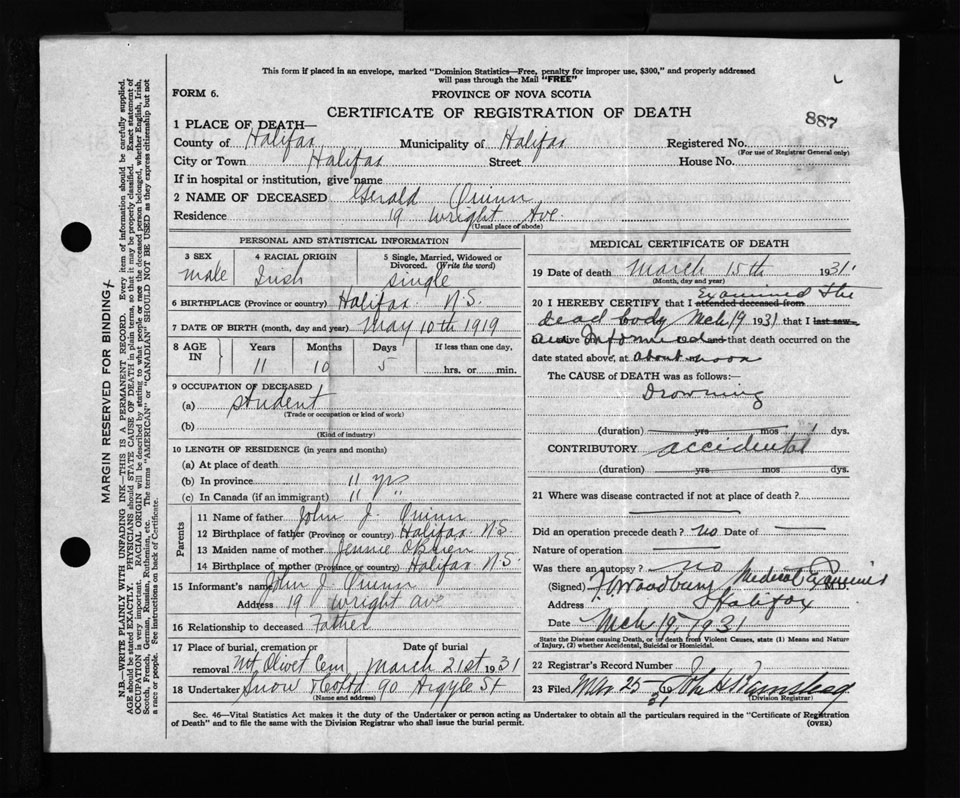 This form if placed in an envelope, marked "Dominion Statistics—Free, penalty for improper use, $300," and properly addressed
will pass through the Mail "FREE"
FORM 6. PROVINCE OF NOVA SCOTIA
CERTIFICATE OF REGISTRATION OF DEATH
887
1 PLACE OF DEATH—
County of Halifax Municipality of Halifax Registered No.
(For use of Registrar General only)
City or Town Halifax Street House No.
If in hospital or institution, give name
2 NAME OF DECEASED Gerald Quinn
Residence 19 Wright Ave
(Usual place of abode)
PERSONAL AND STATISTICAL INFORMATION
3 SEX 4 RACIAL ORIGIN 5 Single, Married, Widowed or
Divorced. (Write the word)
male Irish Single
6 BIRTHPLACE (Province or country) Halifax N.S.
7 DATE OF BIRTH (month, day and year) May 10th 1919
8 AGE IN Years Months Days If less than one day,
11 10 5 hrs. or min.
9 OCCUPATION OF DECEASED
(a) student
(Trade or occupation or kind of work)
(b)
(Kind of industry)
10 LENGTH OF RESIDENCE (in years and months)
(a) At place of death
(b) In province 11 yrs
(c) In Canada (if an immigrant) 11 "
Parents
11 Name of father John J. Quinn
12 Birthplace of father (Province or country) Halifax N.S.
13 Maiden name of mother Jennie O'Brien
14 Birthplace of mother (Province or country) Halifax N.S.
15 Informant's name John J. Quinn
Address 19 Wright Ave
16 Relationship to deceased Father
17 Place of burial, cremation or Date of burial
removal Mt Olivet Cem March 21st 1931
18 Undertaker Snow & Co Ltd 90 Argyle St
(Name and address)
MEDICAL CERTIFICATE OF DEATH
19 Date of death March 15th 1931.
(Month, day and year)
20 I HEREBY CERTIFY that I attended deceased from Examined the
dead body Mch 19 1931 that I last saw
am Informed and that death occurred on the
date stated above, at about noon
The CAUSE of DEATH was as follows:—
Drowning
(duration) yrs mos 1 dys.
CONTRIBUTORY accidental
(duration) yrs. mos. dys.
21 Where was disease contracted if not at place of death?
Did an operation precede death? no Date of
Nature of operation
Was there an autopsy? no
(Signed) F. Woodbury Medical Examiner M.D.
Address Halifax
Date Mch 19 1931
State the Disease causing Death, or in death from Violent Causes, state (1) Means and Nature
of Injury, (2) whether Accidental, Suicidal or Homicidal.
22 Registrar's Record Number
23 Filed Mar 25 31 John
(Division Registrar)
Sec. 46—Vital Statistics Act makes it the duty of the Undertaker or person acting as Undertaker to obtain all the particulars required in the "Certificate of Registration
of Death" and to file the same with the Division Registrar who shall issue the burial permit. (OVER)
MARGIN RESERVED FOR BINDING
N.B.—WRITE PLAINLY WITH UNFADING INK—THIS IS A PERMANENT RECORD. Every item of information should be carefully supplied.
Age should be stated EXACTLY. PHYSICIANS should STATE CAUSE OF DEATH in plain terms, so that it may be properly classified. Exact statement of
OCCUPATION is very important. RACIAL ORIGIN will be described by stating to what people or race the deceased person belonged, whether English, Irish,
Scotch, French, German, Russian, Ruthenian, etc. The terms "AMERICAN" or "CANADIAN" SHOULD NOT BE USED as they express citizenship but not
a race or people. See instructions on back of Certificate.